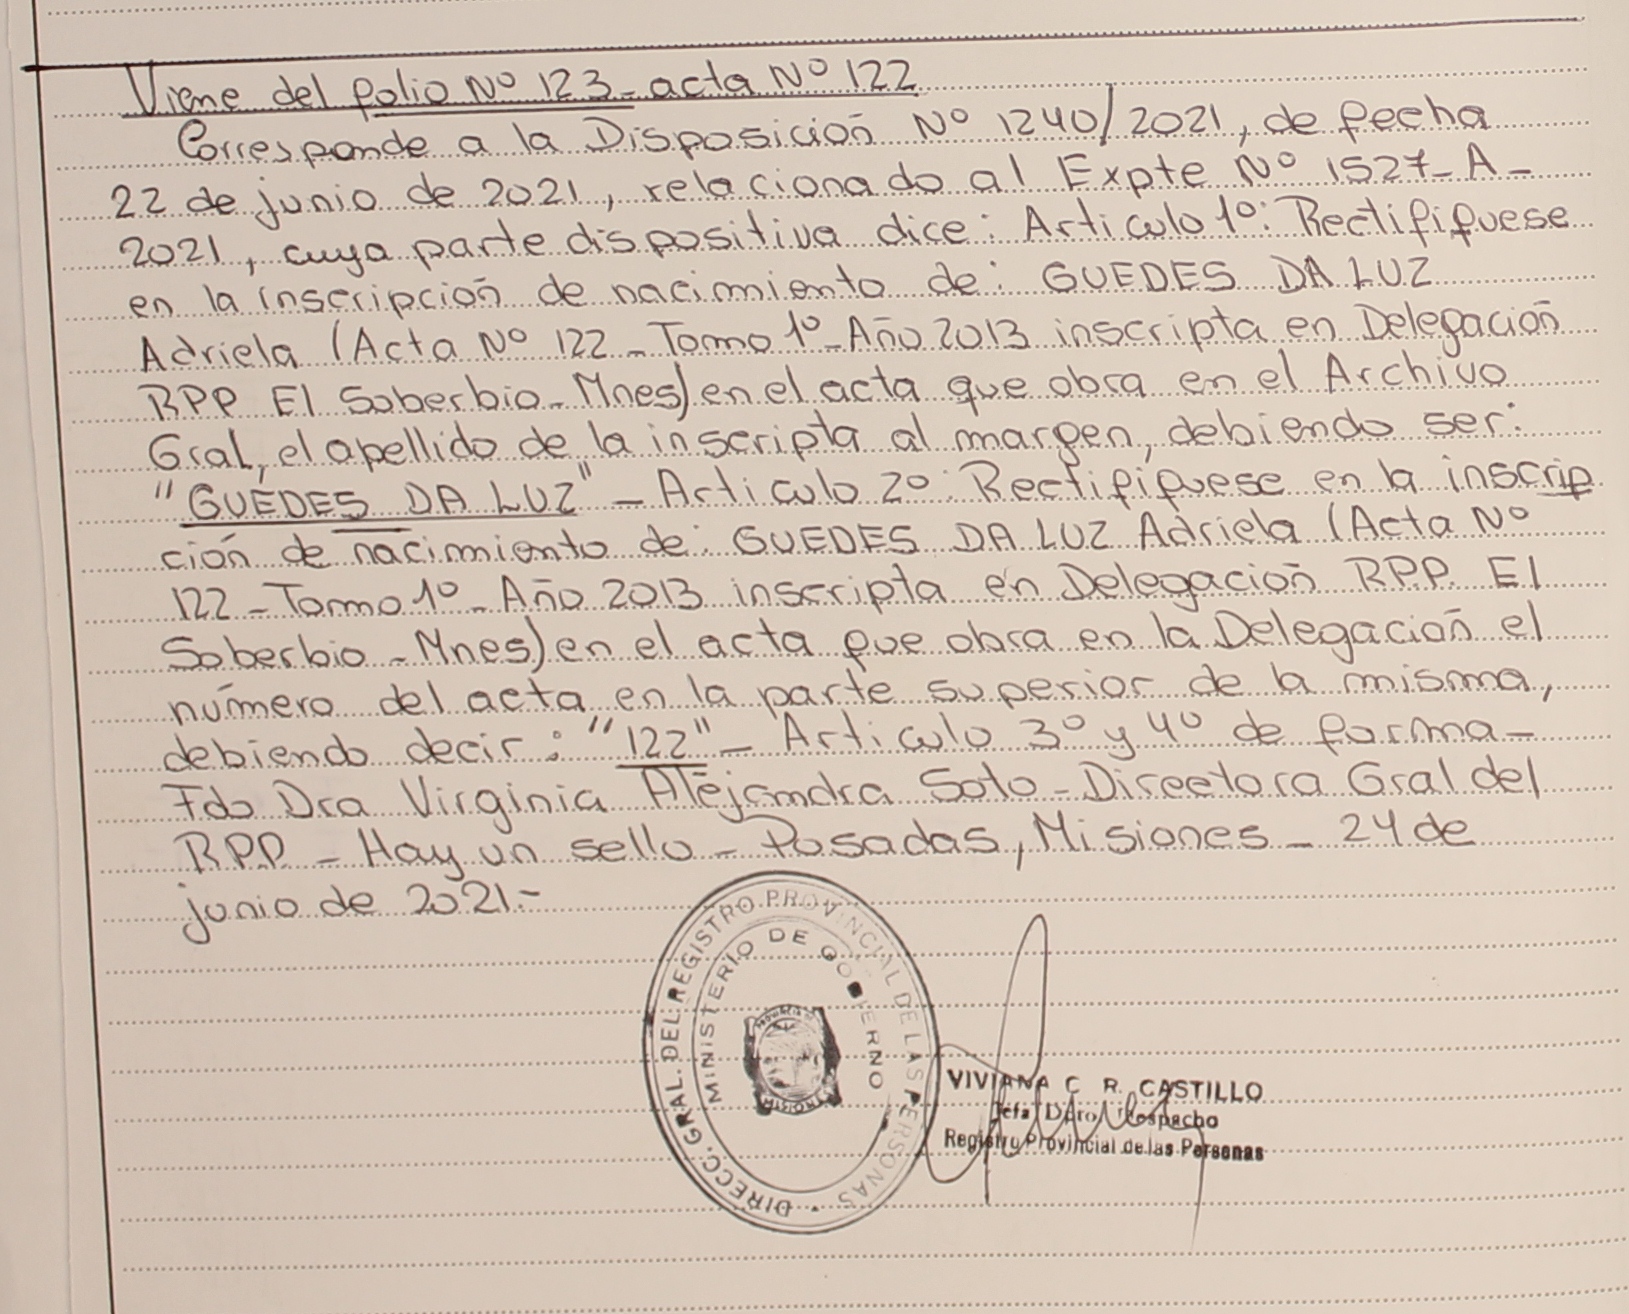 Viene del folio Nº 123 - acta Nº 122
Corresponde a la Disposición Nº 1240/2021, de fecha
22 de junio de 2021, relacionado al Expte Nº 1527-A-
2021, cuya parte dispositiva dice: Articulo 1º: Rectifiquese
en la inscripción de nacimiento de: GUEDES DA LUZ
Adriela (Acta Nº 122 - Tomo 1º - Año 2013 inscripta en Delegación
RPP El Soberbio - Mnes) en el acta que obra en el Archivo
Gral, el apellido de la inscripta al margen, debiendo ser:
"GUEDES DA LUZ" - Articulo 2º: Rectifiquese en la inscrip
ción de nacimiento de: GUEDES DA LUZ Adriela (Acta Nº
122 - Tomo 1º - Año 2013 inscripta en Delegación RPP. El
Soberbio - Mnes) en el acta que obra en la Delegación el
número del acta en la parte superior de la misma,
debiendo decir: "122" - Articulo 3º y 4º de forma -
Fdo Dra Virginia Alejandra Soto - Directora Gral del
RPP - Hay un sello - Posadas, Misiones - 24 de
junio de 2021.-
DIRECC. GRAL. DEL REGISTRO PROVINCIAL DE LAS PERSONAS
MINISTERIO DE GOBIERNO
VIVIANA C. R. CASTILLO
Jefa Dpto Despacho
Registro Provincial de las Personas